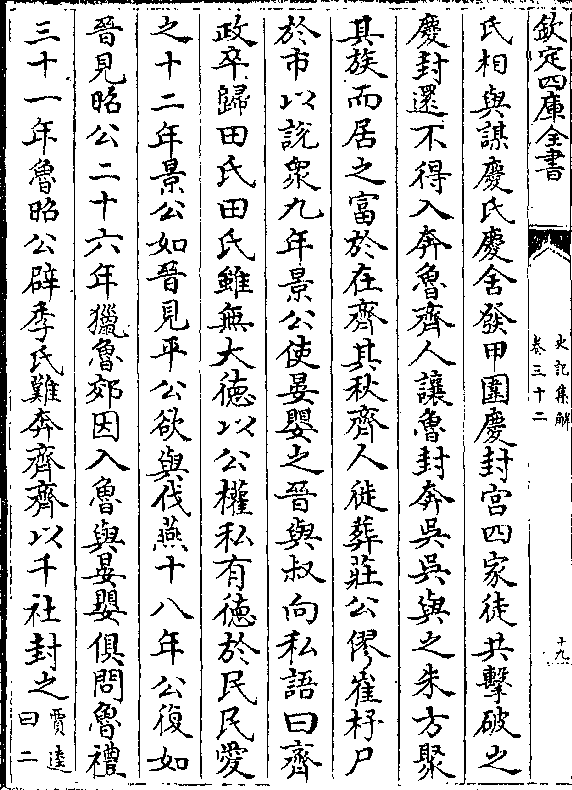 欽定四庫全書
史記集解
卷三十二
十九
氏相與謀慶氏慶舍發甲圍慶封宮四家徒共擊破之
慶封還不得入奔魯齊人讓魯封奔吳吳與之朱方聚
其族而居之富於在齊其秋齊人徙葬莊公僇崔杼尸
於市以說眾九年景公使晏嬰之晉與叔向私語曰齊
政卒歸田氏田氏雖無大徳以公權私有徳於民民愛
之十二年景公如晉見平公欲與伐燕十八年公復如
晉見昭公二十六年獵魯郊因入魯與晏嬰俱問魯禮
三十一年魯昭公辟季氏難奔齊齊以千社封之賈逵
曰二